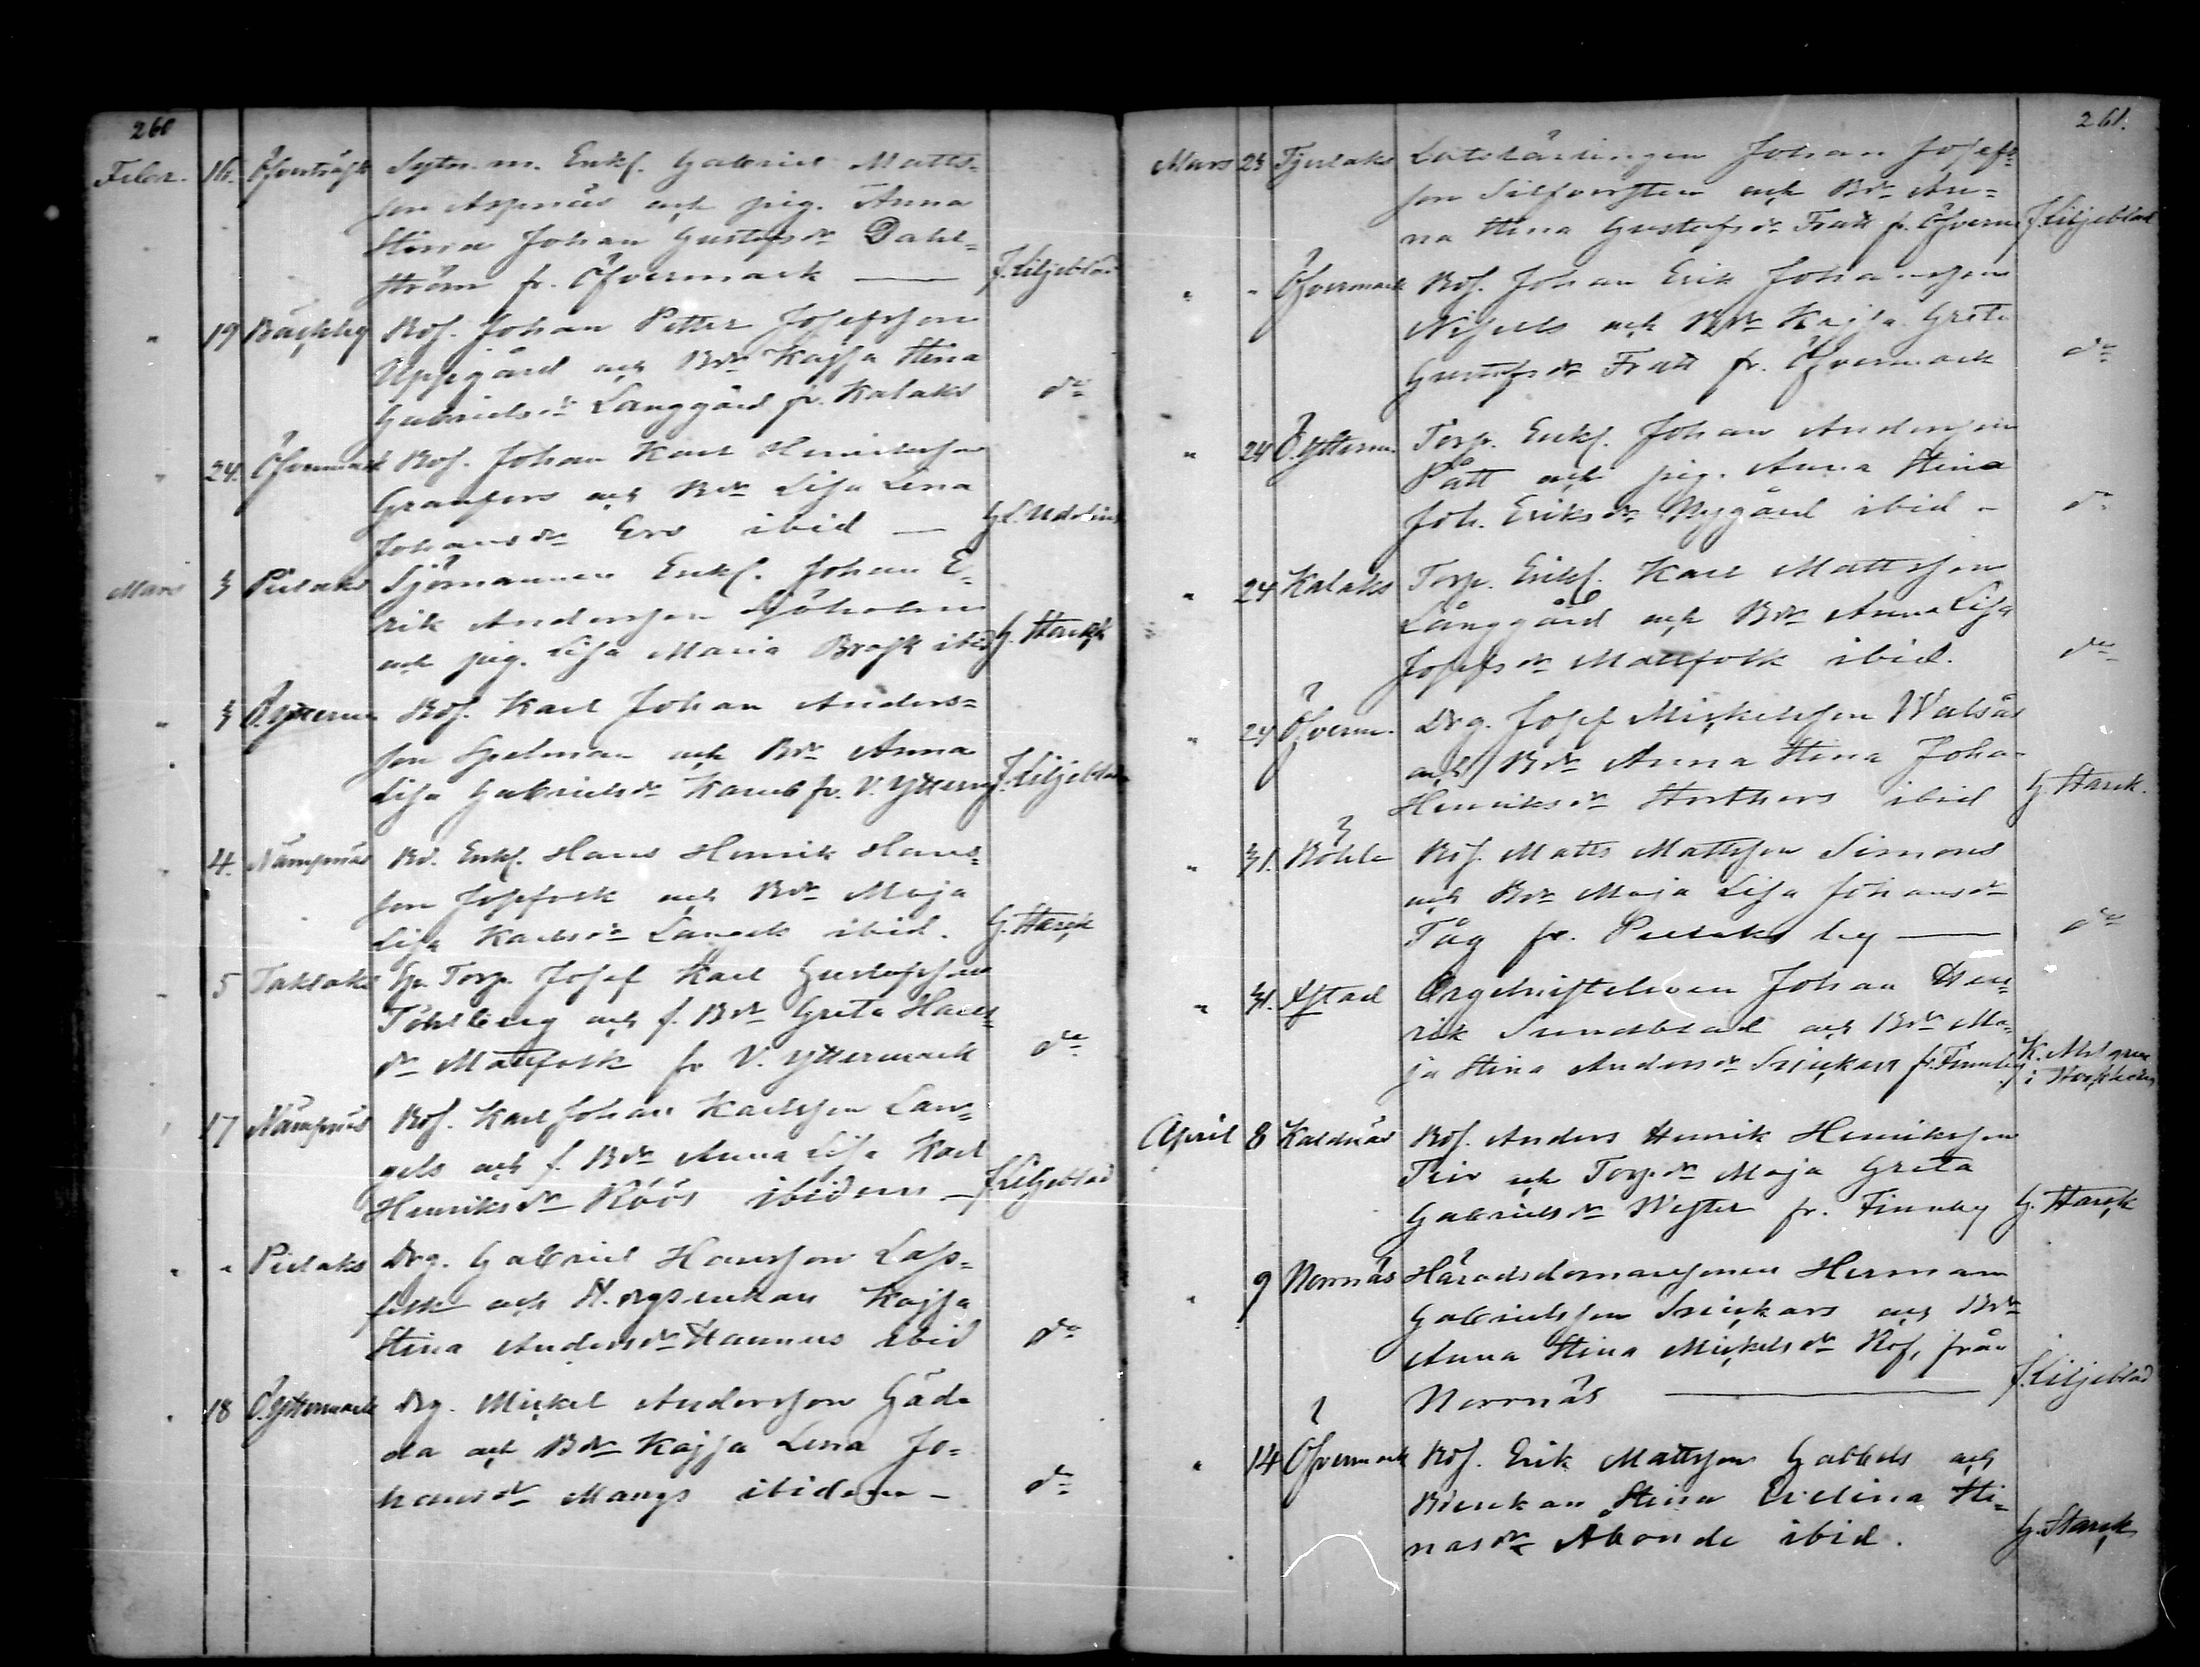 260
Febr. 16. Öfverträsk Sytn.m. Enkl. Gabriel Matts-
son Aspnäs och pig. Anna
Stina Johan Gustafsdr Dahl-
ström fr. Öfvermark — J. Liljeblad
" 19 Bäckby Bds. Johan Petter Josefsson
Uppigård och Bdr Kajsa Stina
Gabrielsdr Långgård fr. Kalaks do
" 24. Öfvermark Bds. Johan Karl Henriksson
Granfors och Bdr Lisa Lena
Johansdr Ers ibid —
Mars 3 Pielaks Sjömannen Enkl. Johan E-
rik Andersson Sjöholm
och pig. Lisa Maria Brask ibid G. Starck
" 3 Ö. Ytterm. Bds. Karl Johan Anders-
son Spelman och Bdr Anna
Lisa Gabrielsdr Kamb fr. V. Ytterm. J. Liljeblad
4. Nämpnäs Bd. Enkl. Hans Henrik Hans-
son Josfolk och Bdr Maja
Lisa Karlsdr Långels ibid. G. Starck
5 Taklaks Torp. Josef Karl Gustafsson
och f. Bdr Greta Hans-
dr Mattfolk fr V. Yttermark do
17 Nämpnäs Bds. Karl Johan Karlsson Lan-
gels och f. Bdr Anna Lisa Karl
Henriksdr Röös ibidem — J. Liljeblad
" " Pielaks Drg. Gabriel Hansson Lass-
folk och Kajsa
Stina Andersdr Hannus ibid do
" 18 Ö. Yttermark Drg. Mickel Andersson Gäd-
da och Bdr Kajsa Lena Jo-
hansdr Mangs ibidem — do
261.
Mars 23 Tjerlaks Johan Josefs-
son Silfversten och Bdr An-
na Stina Gustafsdr Fratt fr. Öfverm. J. Liljeblad
" " Öfvermark Bds. Johan Erik Johansson
Nissels och Bdr Kajsa Greta
Gustafsdr Fratt fr. Öfvermark do
" 24 Ö. Ytterm. Torp. Enkl. Johan Andersson
Pått och pig. Anna Stina
Joh. Eriksdr Nygård ibid — do
" 24 Kalaks Torp. Enkl. Karl Mattsson
Långgård och Bdr Anna Lisa
Josefsdr Mattfolk ibid. do
" 24 Öfverm. Drg. Josef Mickelsson Walsås
och Bdr Anna Stina Johan
Henriksdr Storthors ibid G. Starck.
" 31. Böhle Bds. Matts Mattsson Simons
och Bdr Maja Lisa Johansdr
Tåg fr. Pielaks by — do
" 31. Johan Hen-
rik Sundblad och Bdr Ma-
ja Stina Andersdr Snickars fr. Finnby
April 8 Kaldnäs Bds. Anders Henrik Henriksson
Teir och Torp.dr Maja Greta
Gabrielsdr Wester fr. Finnby G. Starck
" 9 Norrnäs Häradsdomaresonen Herman
Gabrielsson Snickars och Bdr
Anna Stina Mickelsdr Rof, från
Norrnäs — J. Liljeblad
" 14 Öfvermark Bds. Erik Mattsson Gabbels och
Bdenkan Stina Evelina Sti-
nasdr Abonde ibid. G. Starck